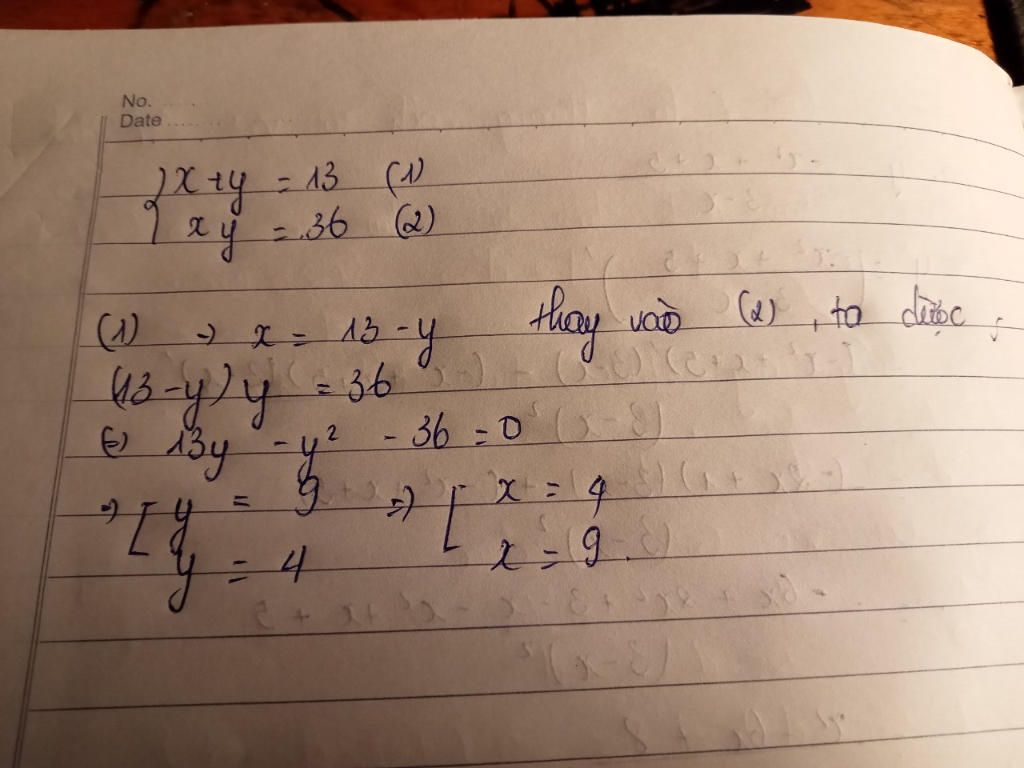 No. .....
Date ..........
{ x + y = 13 (1)
xy = 36 (2)
(1) → x = 13 - y thay vào (2), ta được ;
(13 - y) y = 36
⇔ 13y - y² - 36 = 0
⇒ [ y = 9 ⇒ [ x = 4
y = 4 x = 9.